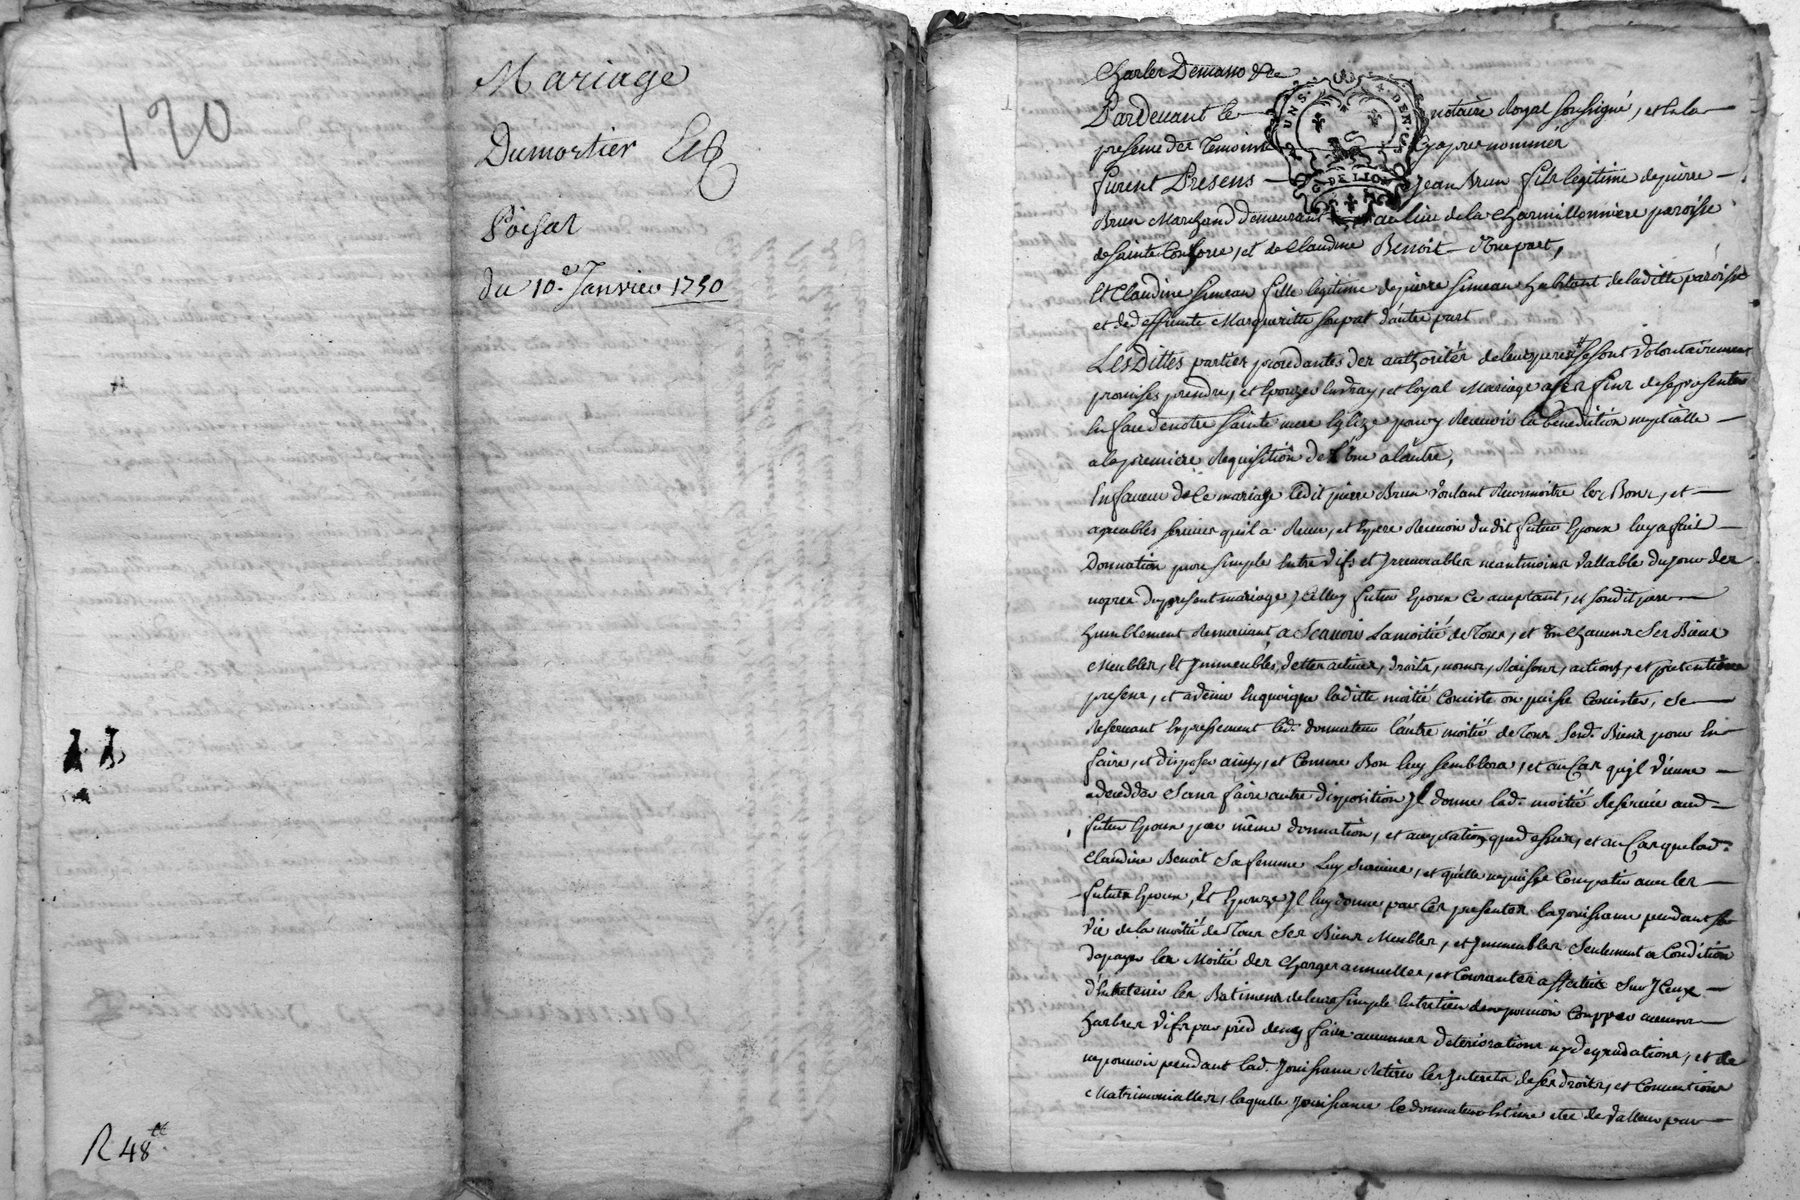 120
Mariage
Dumortier Et
Poisat
du 10.e Janvier 1750
R 48 tt
Charles Demasso &ce
Pardevant le notaire Royal soussigné, et en la
presence des temoins cy apres nommés
furent Presens Jean Brun fils legitime de pierre
Brun Marchand demeurant au lieu de la Charmillonniere paroisse
de sainte Consorce, et de Claudine Benoit d'une part,
Et Claudine simean fille legitime de pierre simean habitant de laditte paroisse
et de deffunte Margueritte soupat d'autre part
Les Dittes parties procedantes des authorités de leurs peres se sont volontairement
promises prendre, et Epouzer en vray, et loyal Mariage a ses fins de se presenter
en face de notre sainte mere Eglize pour y Recevoir la benediction nuptialle
a la premiere Requisition de l'une a l'autre,
En faveur de Ce mariage ledit pierre Brun voulant Reconnoitre les Bons, et
agreables services qu'il a Receu, et Espere Recevoir du dit futur Epoux luy a fait
Donnation pure simple Entre vifs et Irrevocables neantmoins vallable du jour des
nopces du present mariage Icelluy futur Epoux Ce acceptant, et sondit pere
humblement Remerciant a Scavoir La moitié de tous, et un chacuns Ses Biens
Meubles, Et Immeubles, dettes actives, droits, noms, Raisons, actions, et pretentions
presens, et a venir En quoique laditte moitié Consiste ou puisse Consister, se
Reservant Expressement led. donnateur l'autre moitié de tous sesd. Biens pour En
faire, et disposer ainsy, et Comme Bon luy semblera, et au Cas qu'il vienne
a deceder Sans faire autre disposition Il donne lad. moitié Reservée aud.
futur Epoux par même donnation, et acceptation que dessus, et au Cas que lad.
Claudine Benoit Sa femme Luy survive, et qu'elle ne puisse Compatir avec les
futurs Epoux, Et Epouze Il luy donne par Ces presentes la Jouissance pendant sa
vie de la moitié de tous Ses Biens Meubles, et Immeubles seulement a Condition
de payer les Moitié des Charges annuelles, et Courantes affectées Sur Iceux
d'Entretenir les Batimens de leur simple Entretien de ne pouvoir Coupper aucuns
harbres vifs par pied de n'y faire aucunnes deteriorations ny degradations, et de
ne pouvoir pendant lad. Jouissance Retirer les Interets de ses droits, et Conventions
Matrimonialles, laquelle Jouissance le donnateur Estime etre de valleur par